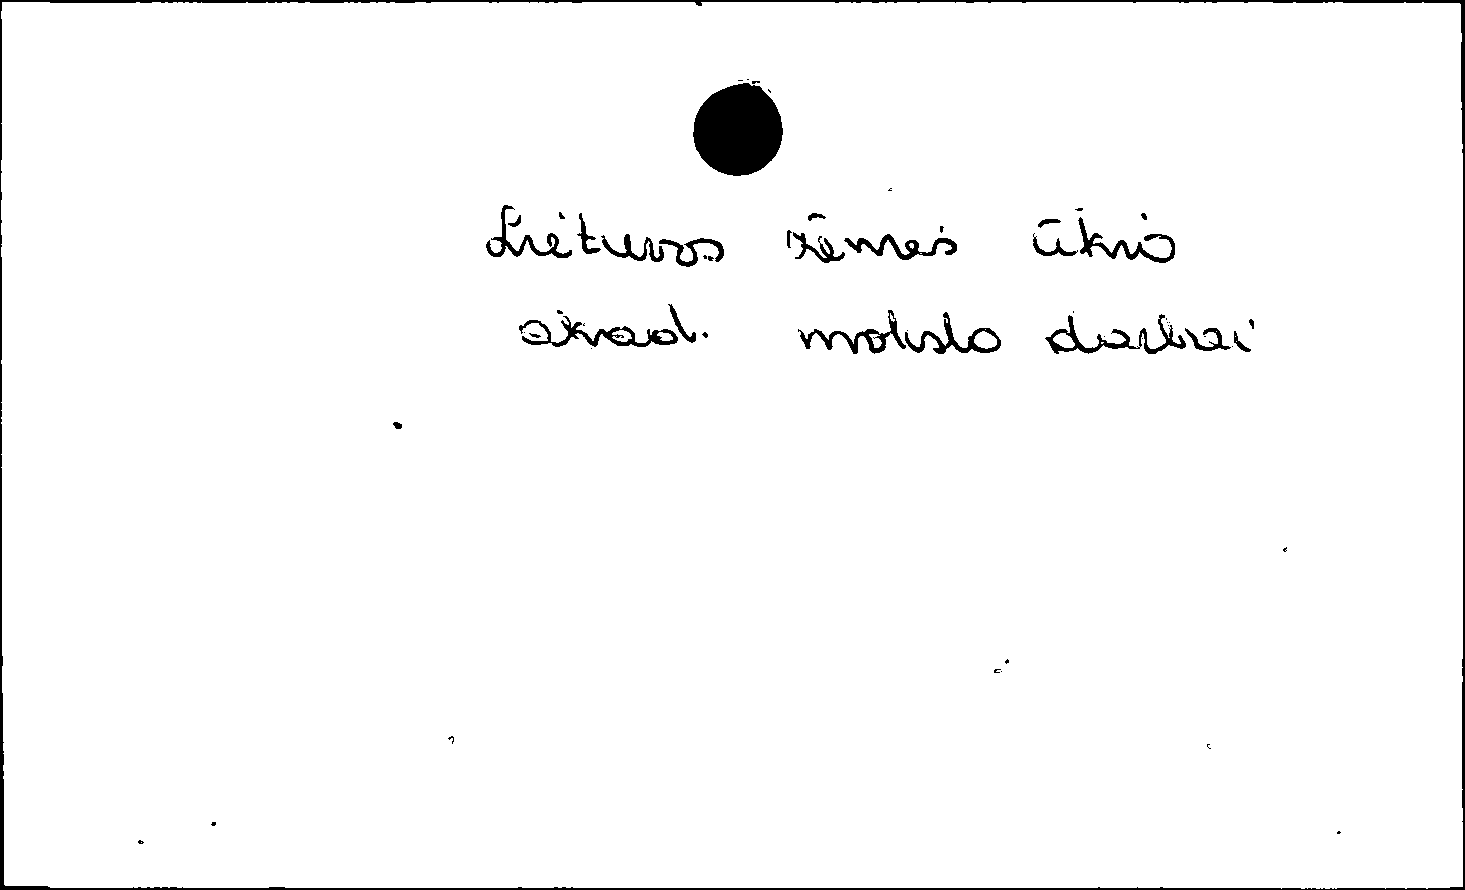 Lietuvos žemės ūkio
akad. mokslo darbai